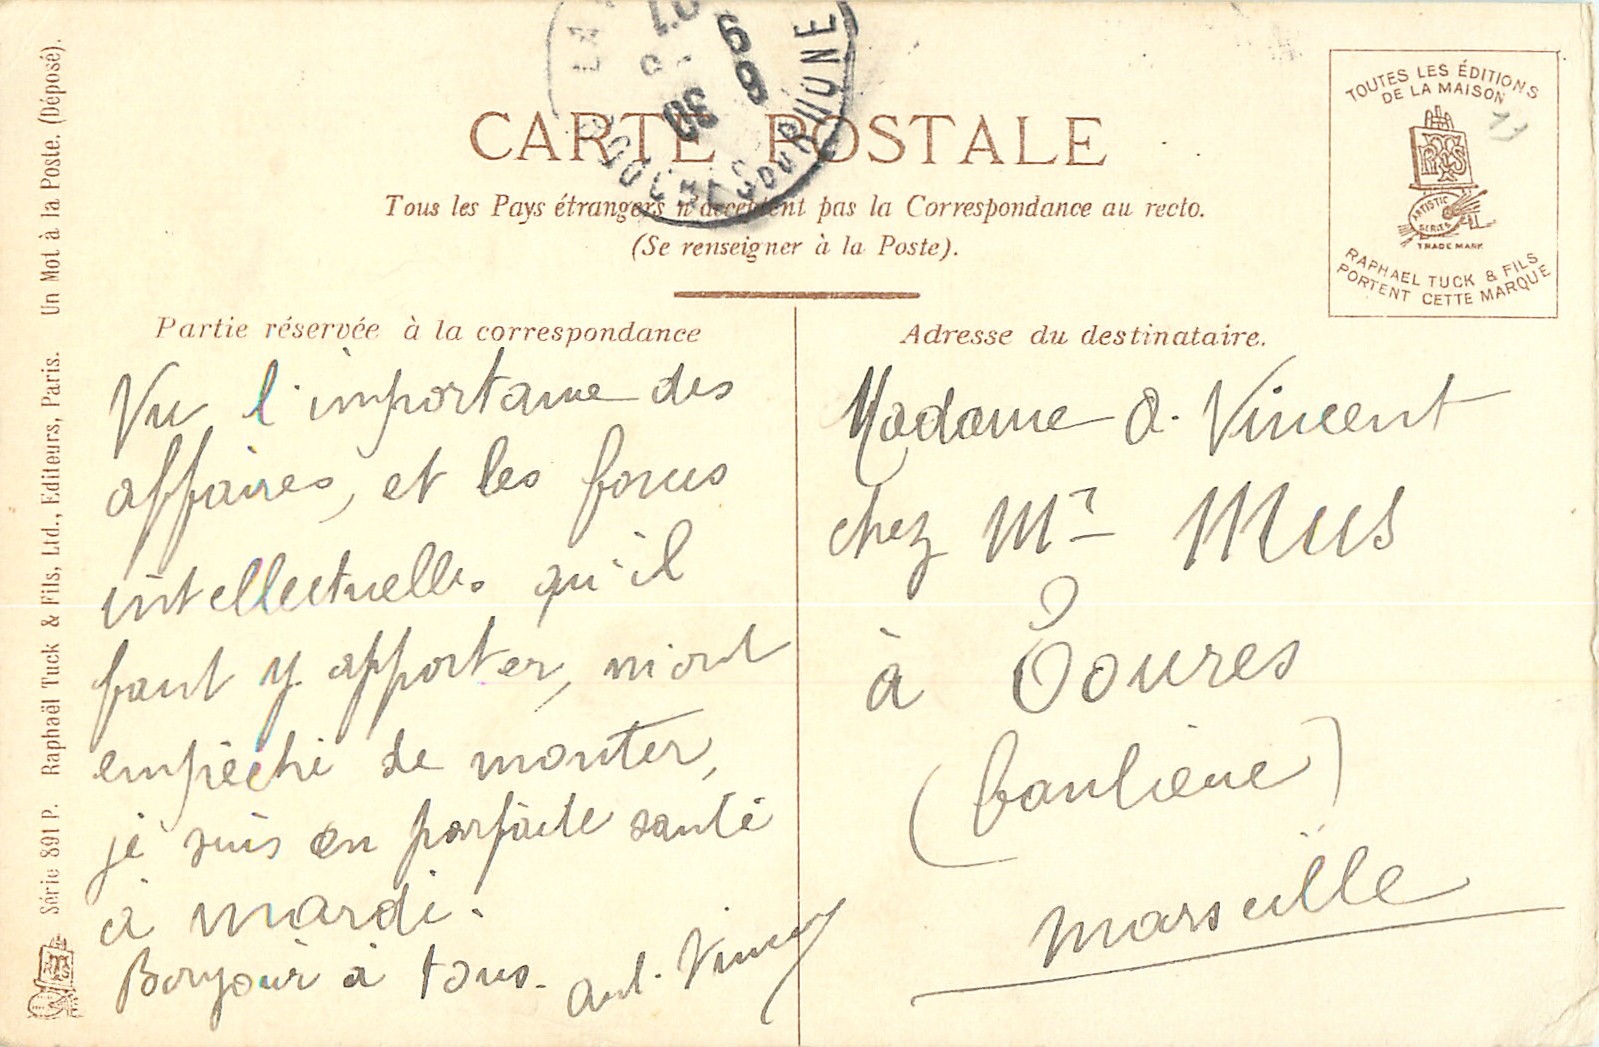 CARTE POSTALE
Tous les Pays étrangers n'acceptent pas la Correspondance au recto.
(Se renseigner à la Poste).
TOUTES LES ÉDITIONS
DE LA MAISON
ARTISTIC
SERIES
TRADE MARK
RAPHAEL TUCK & FILS
PORTENT CETTE MARQUE
11
30
6
9
BOUCHES DU RHONE
Partie réservée à la correspondance
Vu l'importance des
affaires, et les forces
intellectuelles qu'il
faut y apporter, m'ont
empêché de monter,
je suis en parfaite santé
à mardi.
Bonjour à tous.
Ant. Vincent
Adresse du destinataire.
Madame A. Vincent
chez Mr Mus
à Toures
(banlieue)
Marseille
Série 891 P. Raphaël Tuck & Fils, Ltd., Editeurs, Paris. Un Mot à la Poste. (Déposé).